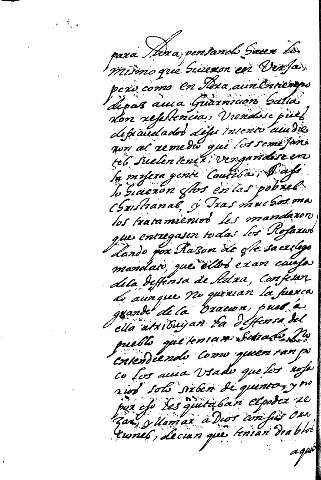 para Adra, pensando hacer lo
mismo que hicieron en Versa,
pero como en Adra, aun en tiempo
de paz auia Guarnicion halla
ron resistencia, Viendose pues
defraudados desu intento acudie
ron al remedio que los semejan
tes suelen tener Vengandose en
la misera gente Cautiva. Y assi
lo hicieron estos en las pobres
Christianas, y tras muchos ma
los tratamientos les mandaron
que entregasen todas los Rosarios
dando por Razon de este sacrilego
mandato, que ellos eran causa
dela deffensa de Adra, Confesan
do aunque No querian la fuerza
grande de la Oracion, pues a
ella atribuyan la deffensa del
pueblo que tenian No
entendiendo como quien tanpo
co los auia Vsado que los rosa
rios solo sirben de quenta, y no
por eso les quitaban el poder re
zar, y llamar a Dios en sus ora
ciones, decian que tenian diablos
aque